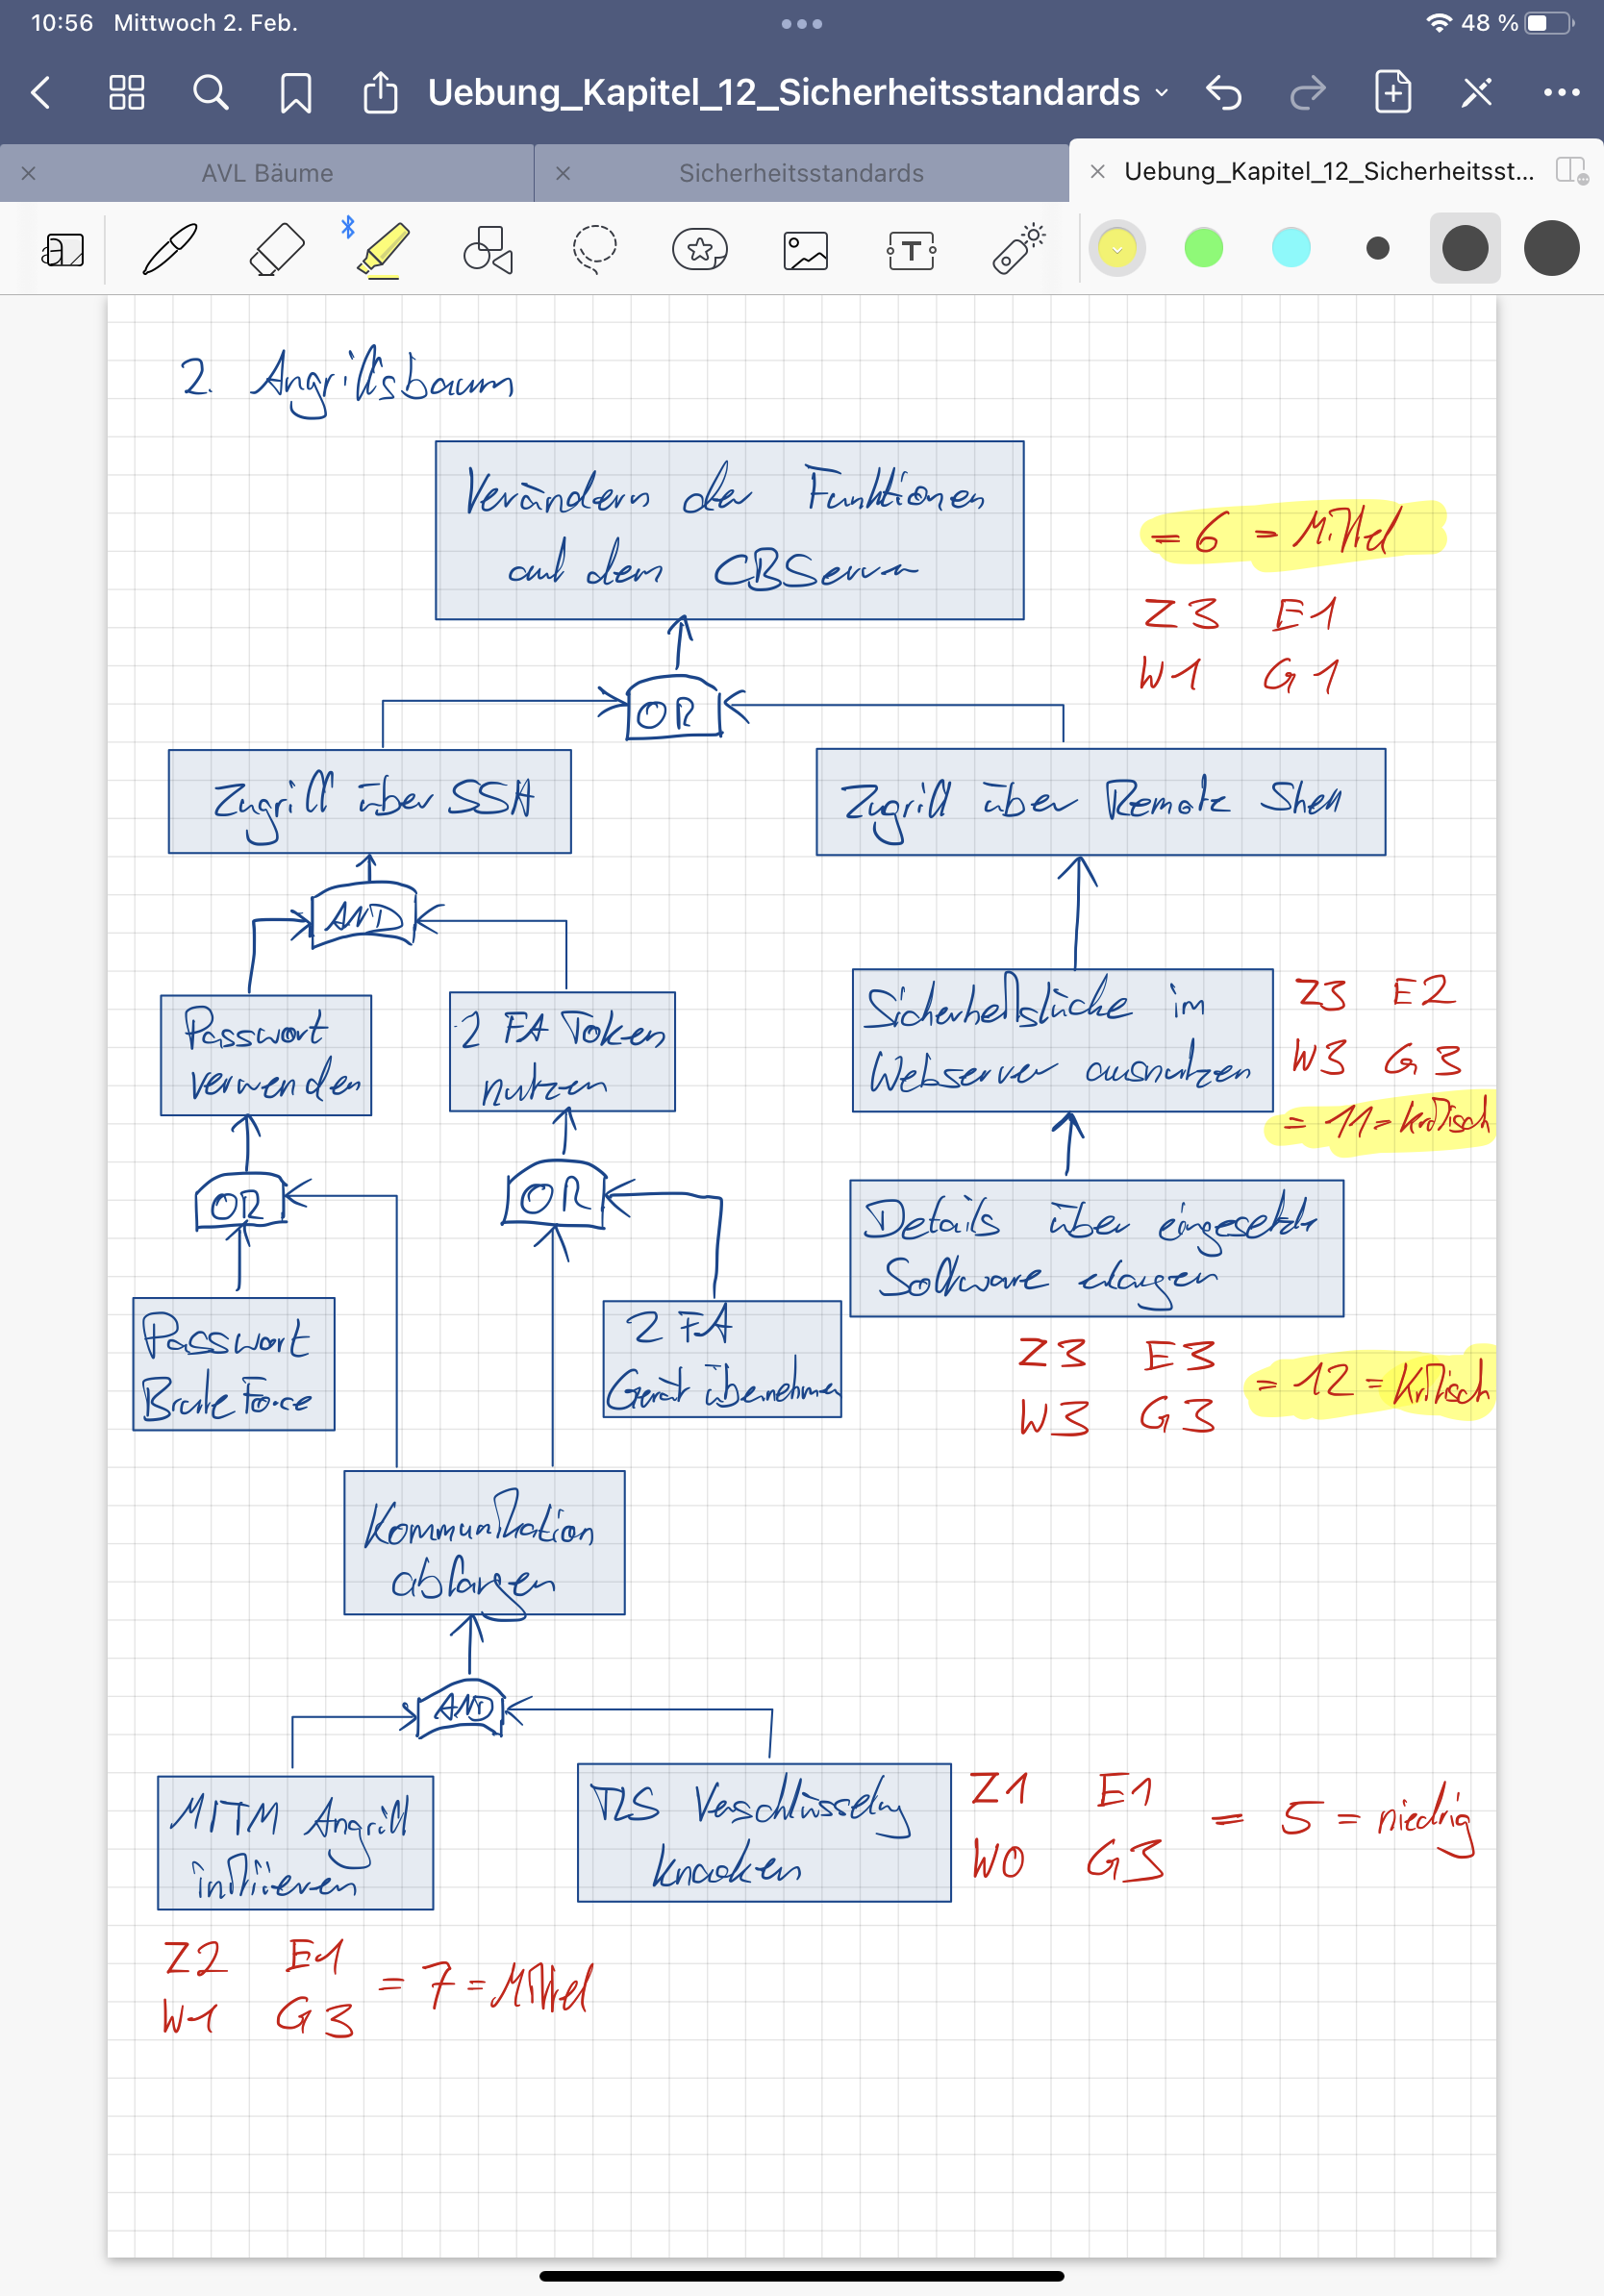 10:56 Mittwoch 2. Feb.
48 %
Uebung_Kapitel_12_Sicherheitsstandards
AVL Bäume
Sicherheitsstandards
Uebung_Kapitel_12_Sicherheitsst...
T
2. Angriffsbaum
Verändern der Funktionen
auf dem CBServer
= 6 = Mittel
Z3 E1
W1 G1
OR
Zugriff über SSH
Zugriff über Remote Shell
AND
Passwort
verwenden
2 FA Token
nutzen
Sicherheitslücke im
Webserver ausnutzen
Z3 E2
W3 G3
= 11 = kritisch
OR
OR
Details über eingesetzte
Software erlangen
Passwort
Brute Force
2 FA
Gerät übernehmen
Z3 E3
W3 G3
= 12 = Kritisch
Kommunikation
abfangen
AND
MITM Angriff
initiieren
TLS Verschlüsselung
knacken
Z1 E1
W0 G3
= 5 = niedrig
Z2 E1
W1 G3
= 7 = Mittel